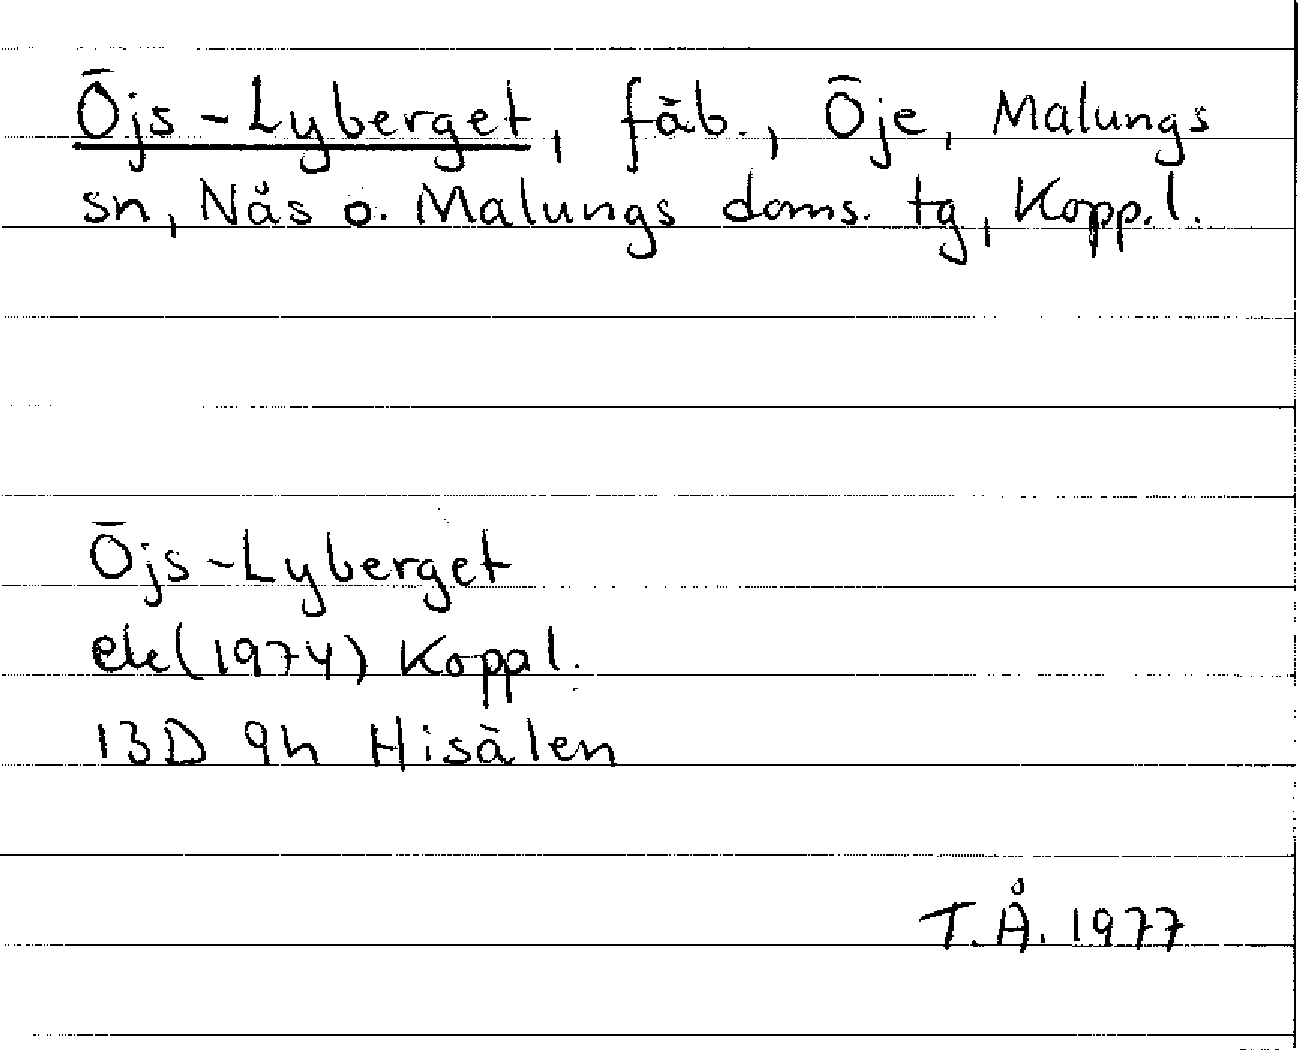 Öjs-Lyberget, fäb., Öje, Malungs
sn, Nås o. Malungs doms. tg, Kopp.l.
Öjs-Lyberget
ek (1974) Koppl.
13D 9h Hisälen
T.Å. 1977